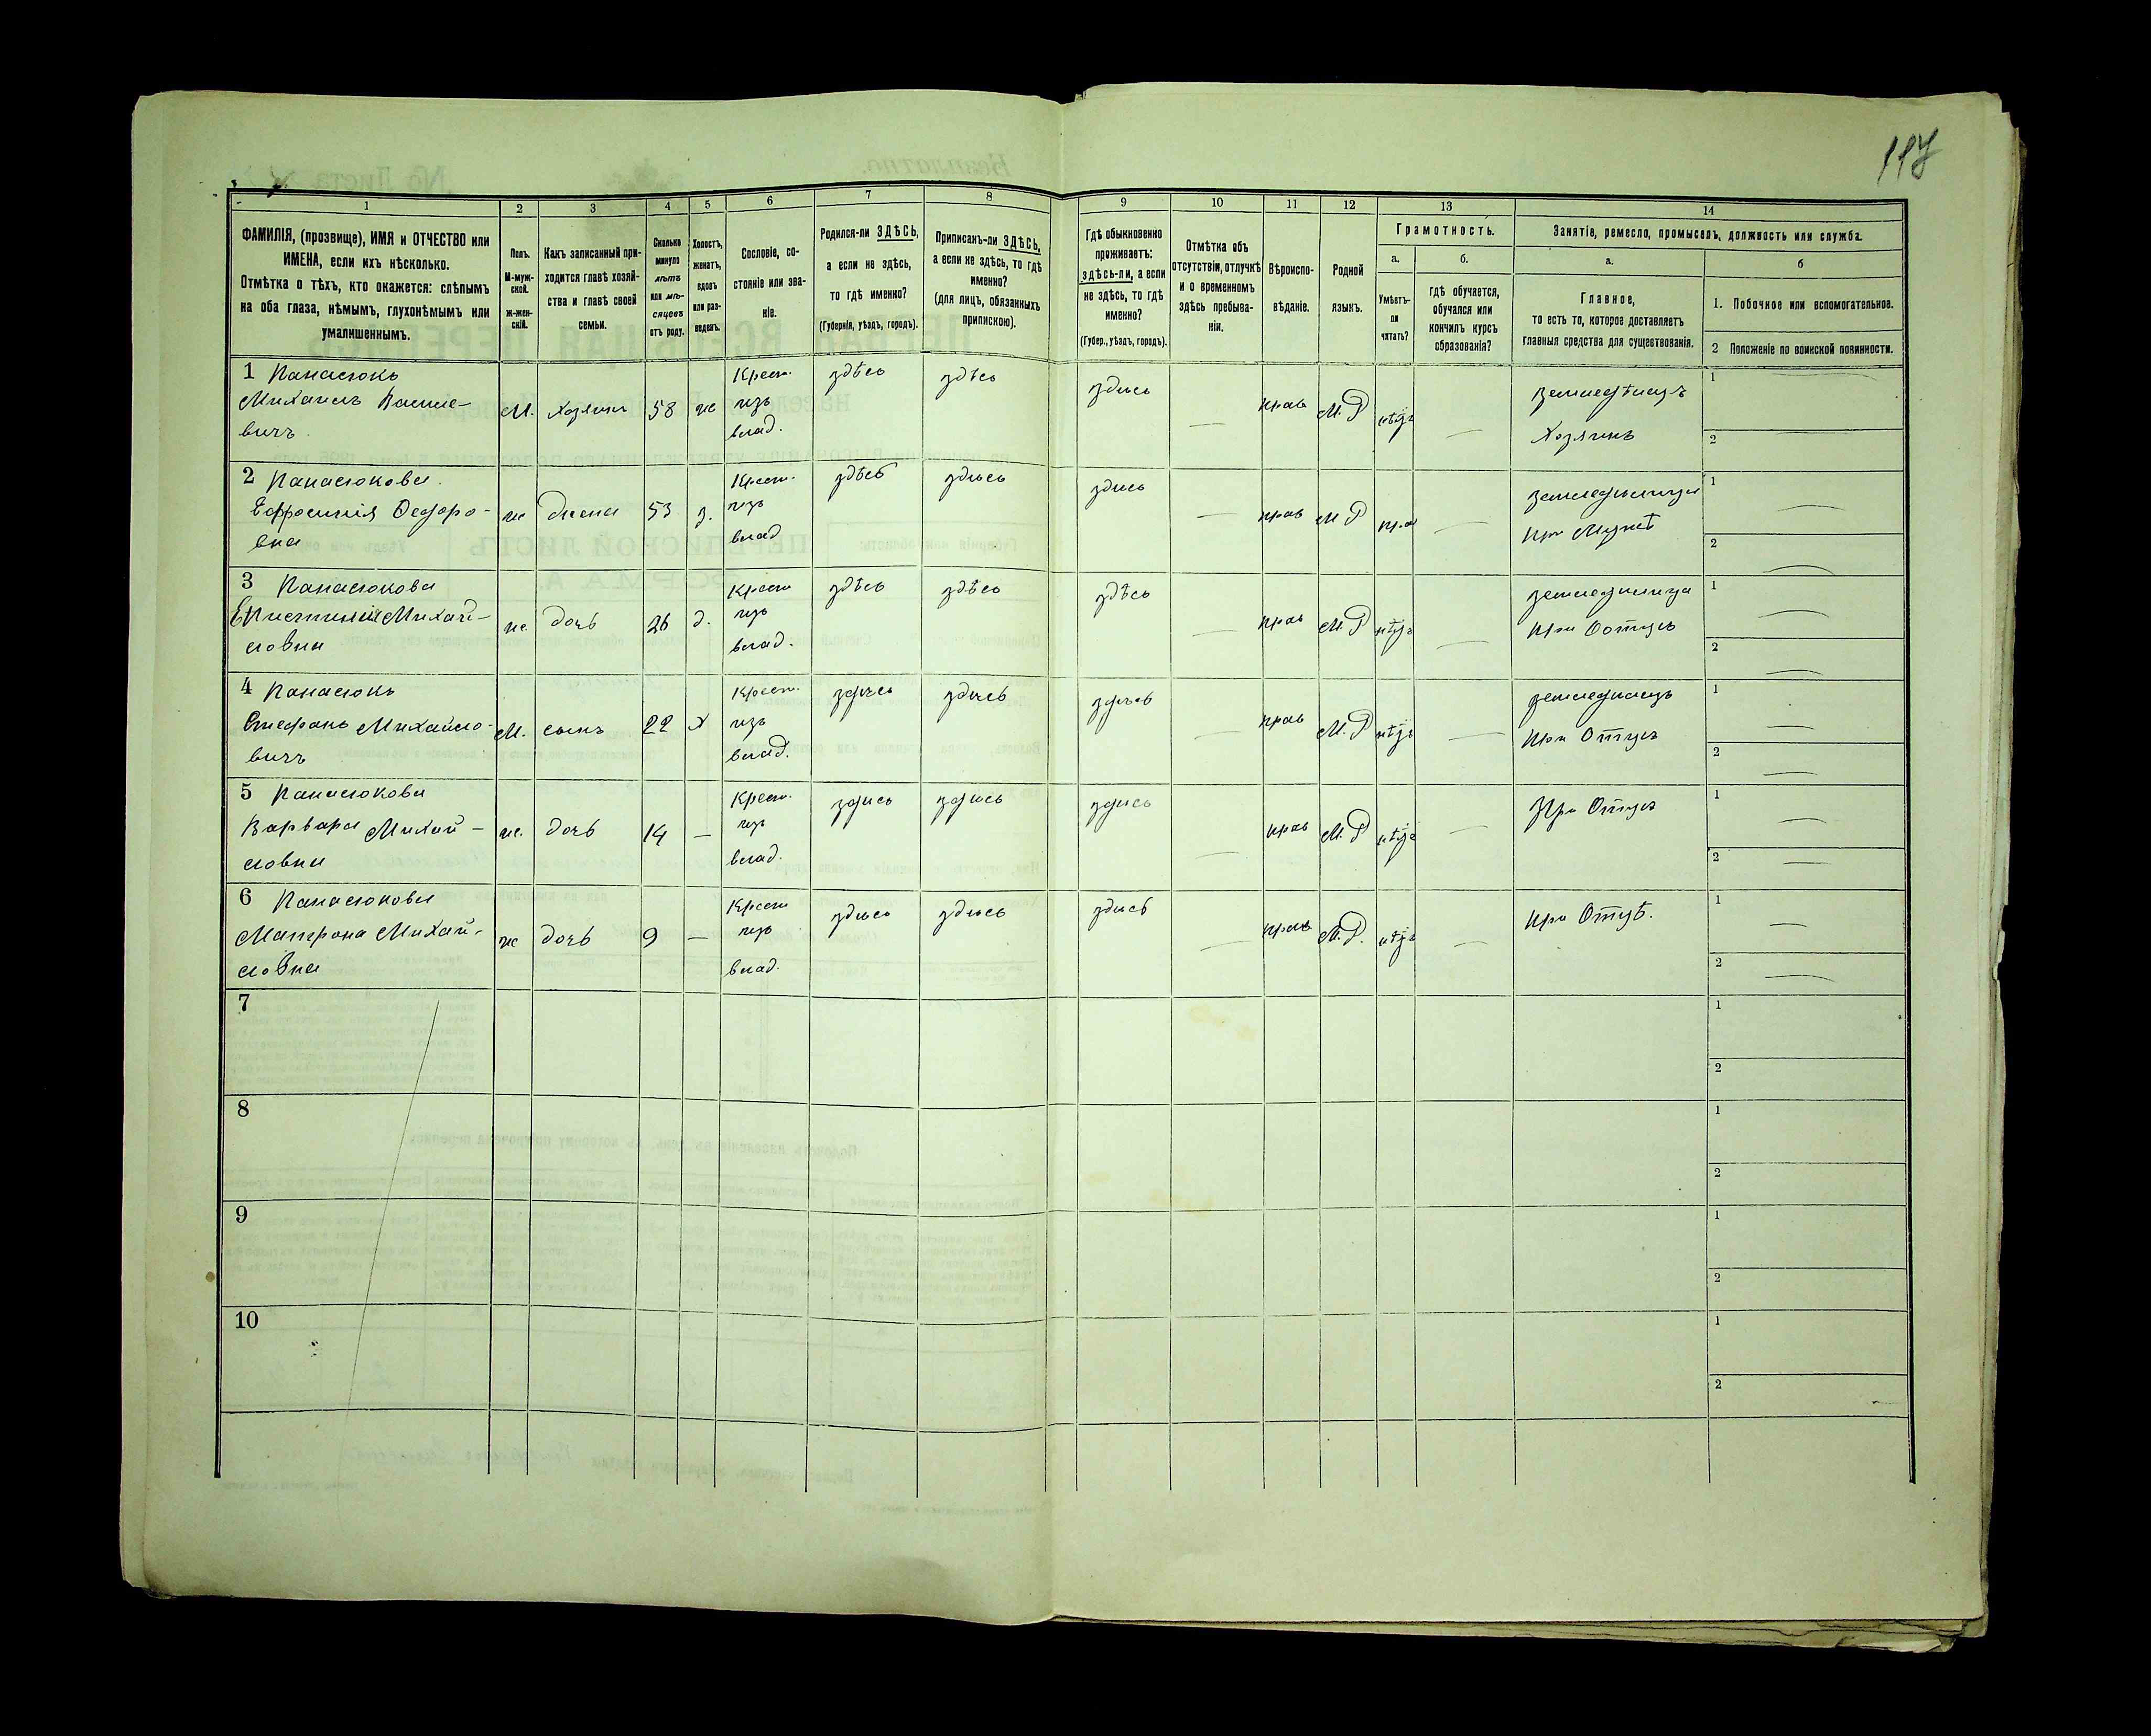 117
1 2 3 4 5 6 7 8 9 10 11 12 13 14
ФАМИЛІЯ, (прозвище), ИМЯ и ОТЧЕСТВО или
ИМЕНА, если ихъ нѣсколько.
Отмѣтка о тѣхъ, кто окажется: слѣпымъ
на оба глаза, нѣмымъ, глухонѣмымъ или
умалишеннымъ.
Полъ.
М-муж-
ской.
ж-жен-
скій.
Какъ записанный при-
ходится главѣ хозяй-
ства и главѣ своей
семьи.
Сколько
минуло
лѣтъ
или мѣ-
сяцевъ
отъ роду.
Холостъ,
женатъ,
вдовъ
или раз-
веденъ.
Сословіе, со-
стояніе или зва-
ніе.
Родился-ли ЗДѢСЬ,
а если не здѣсь,
то гдѣ именно?
(Губернія, уѣздъ, городъ).
Приписанъ-ли ЗДѢСЬ,
а если не здѣсь, то гдѣ
именно?
(для лицъ, обязанныхъ
припискою).
Гдѣ обыкновенно
проживаетъ:
здѣсь-ли, а если
не здѣсь, то гдѣ
именно?
(Губер., уѣздъ, городъ).
Отмѣтка объ
отсутствіи, отлучкѣ
и о временномъ
здѣсь пребыва-
ніи.
Вѣроиспо-
вѣданіе.
Родной
языкъ.
Грамотность.
а.
Умѣетъ-
ли
читать?
б.
гдѣ обучается,
обучался или
кончилъ курсъ
образованія?
Занятіе, ремесло, промыселъ, должность или служба.
а.
Главное,
то есть то, которое доставляетъ
главныя средства для существованія.
б
1. Побочное или вспомогательное.
2 Положеніе по воинской повинности.
1 Панасюкъ Крест. здѣсь здѣсь здѣсь земледѣлецъ 1
Михаилъ Василе- М. хозяинъ 58 ж изъ — прав М.Р нѣтъ —
вичъ влад. Хозяинъ 2
2 Панасюкова Крест. здѣсь здѣсь здѣсь земледѣлица 1
Ефросинія Федоро- ж жена 53 з. изъ — прав М Р —
вна влад при Мужѣ 2
3 Панасюкова Крест здѣсь здѣсь здѣсь земледѣлица 1
Михай- ж. дочь 26 д. изъ — прав М.Р нѣтъ —
ловна влад. при Отцѣ 2
4 Панасюкъ Крест. здѣсь здѣсь здѣсь земледѣлецъ 1
Стефанъ Михайло- М. сынъ 22 х изъ — прав М.Р нѣтъ —
вичъ влад. при Отцѣ 2
5 Панасюкова Крест. здѣсь здѣсь здѣсь При Отцѣ 1
Варвара Михай- ж. дочь 14 — изъ — прав М.Р нѣтъ —
ловна влад. 2
6 Панасюкова Крест здѣсь здѣсь здѣсь при Отцѣ. 1
Матрона Михай- ж дочь 9 — изъ — прав М.Р. нѣтъ —
ловна влад. 2
7 1
2
8 1
2
9 1
2
10 1
2